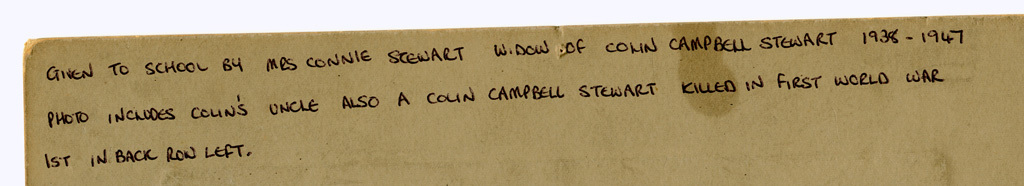 GIVEN TO SCHOOL BY MRS CONNIE STEWART WIDOW OF COLIN CAMPBELL STEWART 1938 - 1947
PHOTO INCLUDES COLIN'S UNCLE ALSO A COLIN CAMPBELL STEWART KILLED IN FIRST WORLD WAR
1ST IN BACK ROW LEFT.